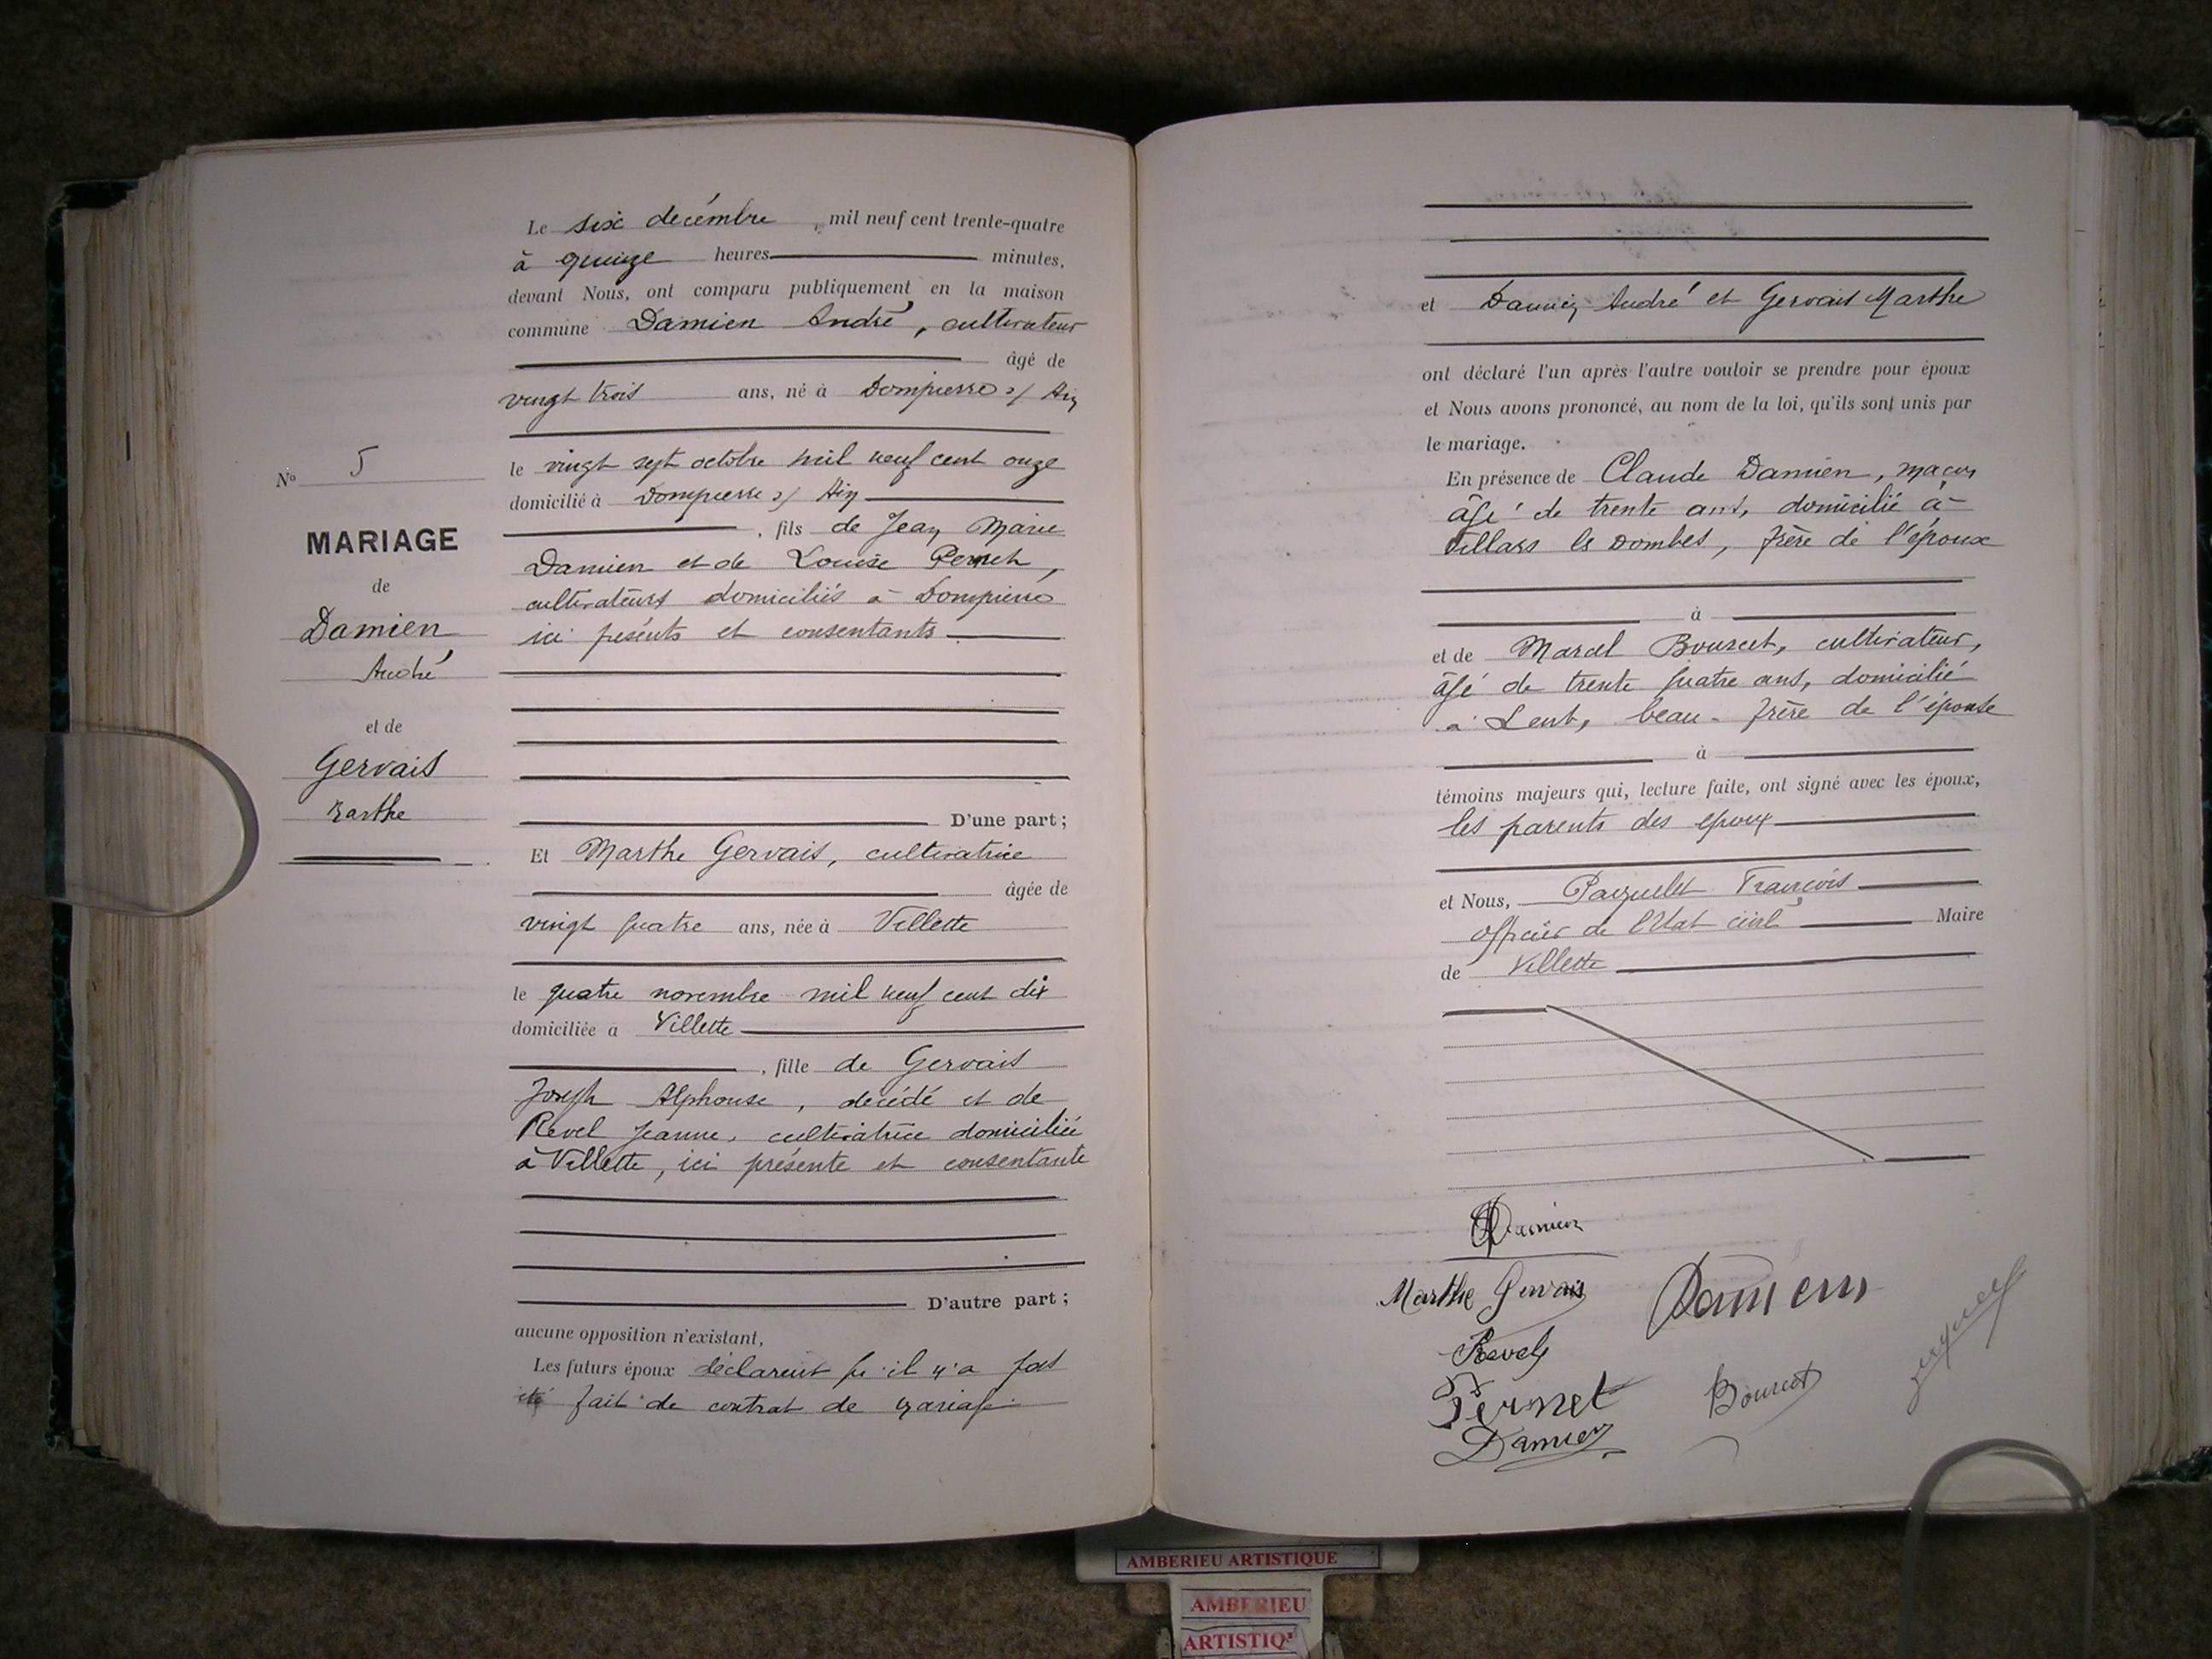 N° 5
MARIAGE
de
Damien
André
et de
Gervais
Marthe
Le six decémbre, mil neuf cent trente-quatre
à quinze heures minutes,
devant Nous, ont comparu publiquement en la maison
commune Damien André, cultivateur
âgé de
vingt trois ans, né à Dompierre s/ Ain
le vingt sept octobre mil neuf cent onze
domicilié à Dompierre s/ Ain
, fils de Jean Marie
Damien et de Louise Pernet,
cultivateurs domiciliés à Dompierre
ici présents et consentants
D'une part ;
Et Marthe Gervais, cultivatrice
âgée de
vingt quatre ans, née à Villette
le quatre novembre mil neuf cent dix
domiciliée à Villette
, fille de Gervais
Joseph Alphonse, décédé et de
Revel Jeanne, cultivatrice domiciliée
à Villette, ici présente et consentante
D'autre part ;
aucune opposition n'existant,
Les futurs époux déclarent qu'il n'a pas
été fait de contrat de mariage
et Damien André et Gervais Marthe
ont déclaré l'un après l'autre vouloir se prendre pour époux
et Nous avons prononcé, au nom de la loi, qu'ils sont unis par
le mariage.
En présence de Claude Damien, maçon
âgé de trente ans, domicilié à
Villars les Dombes, frère de l'époux
à
et de Marcel Bourcet, cultivateur,
âgé de trente quatre ans, domicilié
à Lent, beau-frère de l'épouse
à
témoins majeurs qui, lecture faite, ont signé avec les époux,
les parents des époux
et Nous, Paquelet François
officier de l'Etat civil Maire
de Villette
Damien
Marthe Gervais
Damien
Revel
Pernet
Bourcet
Damien
AMBERIEU ARTISTIQUE
AMBERIEU
ARTISTIQ